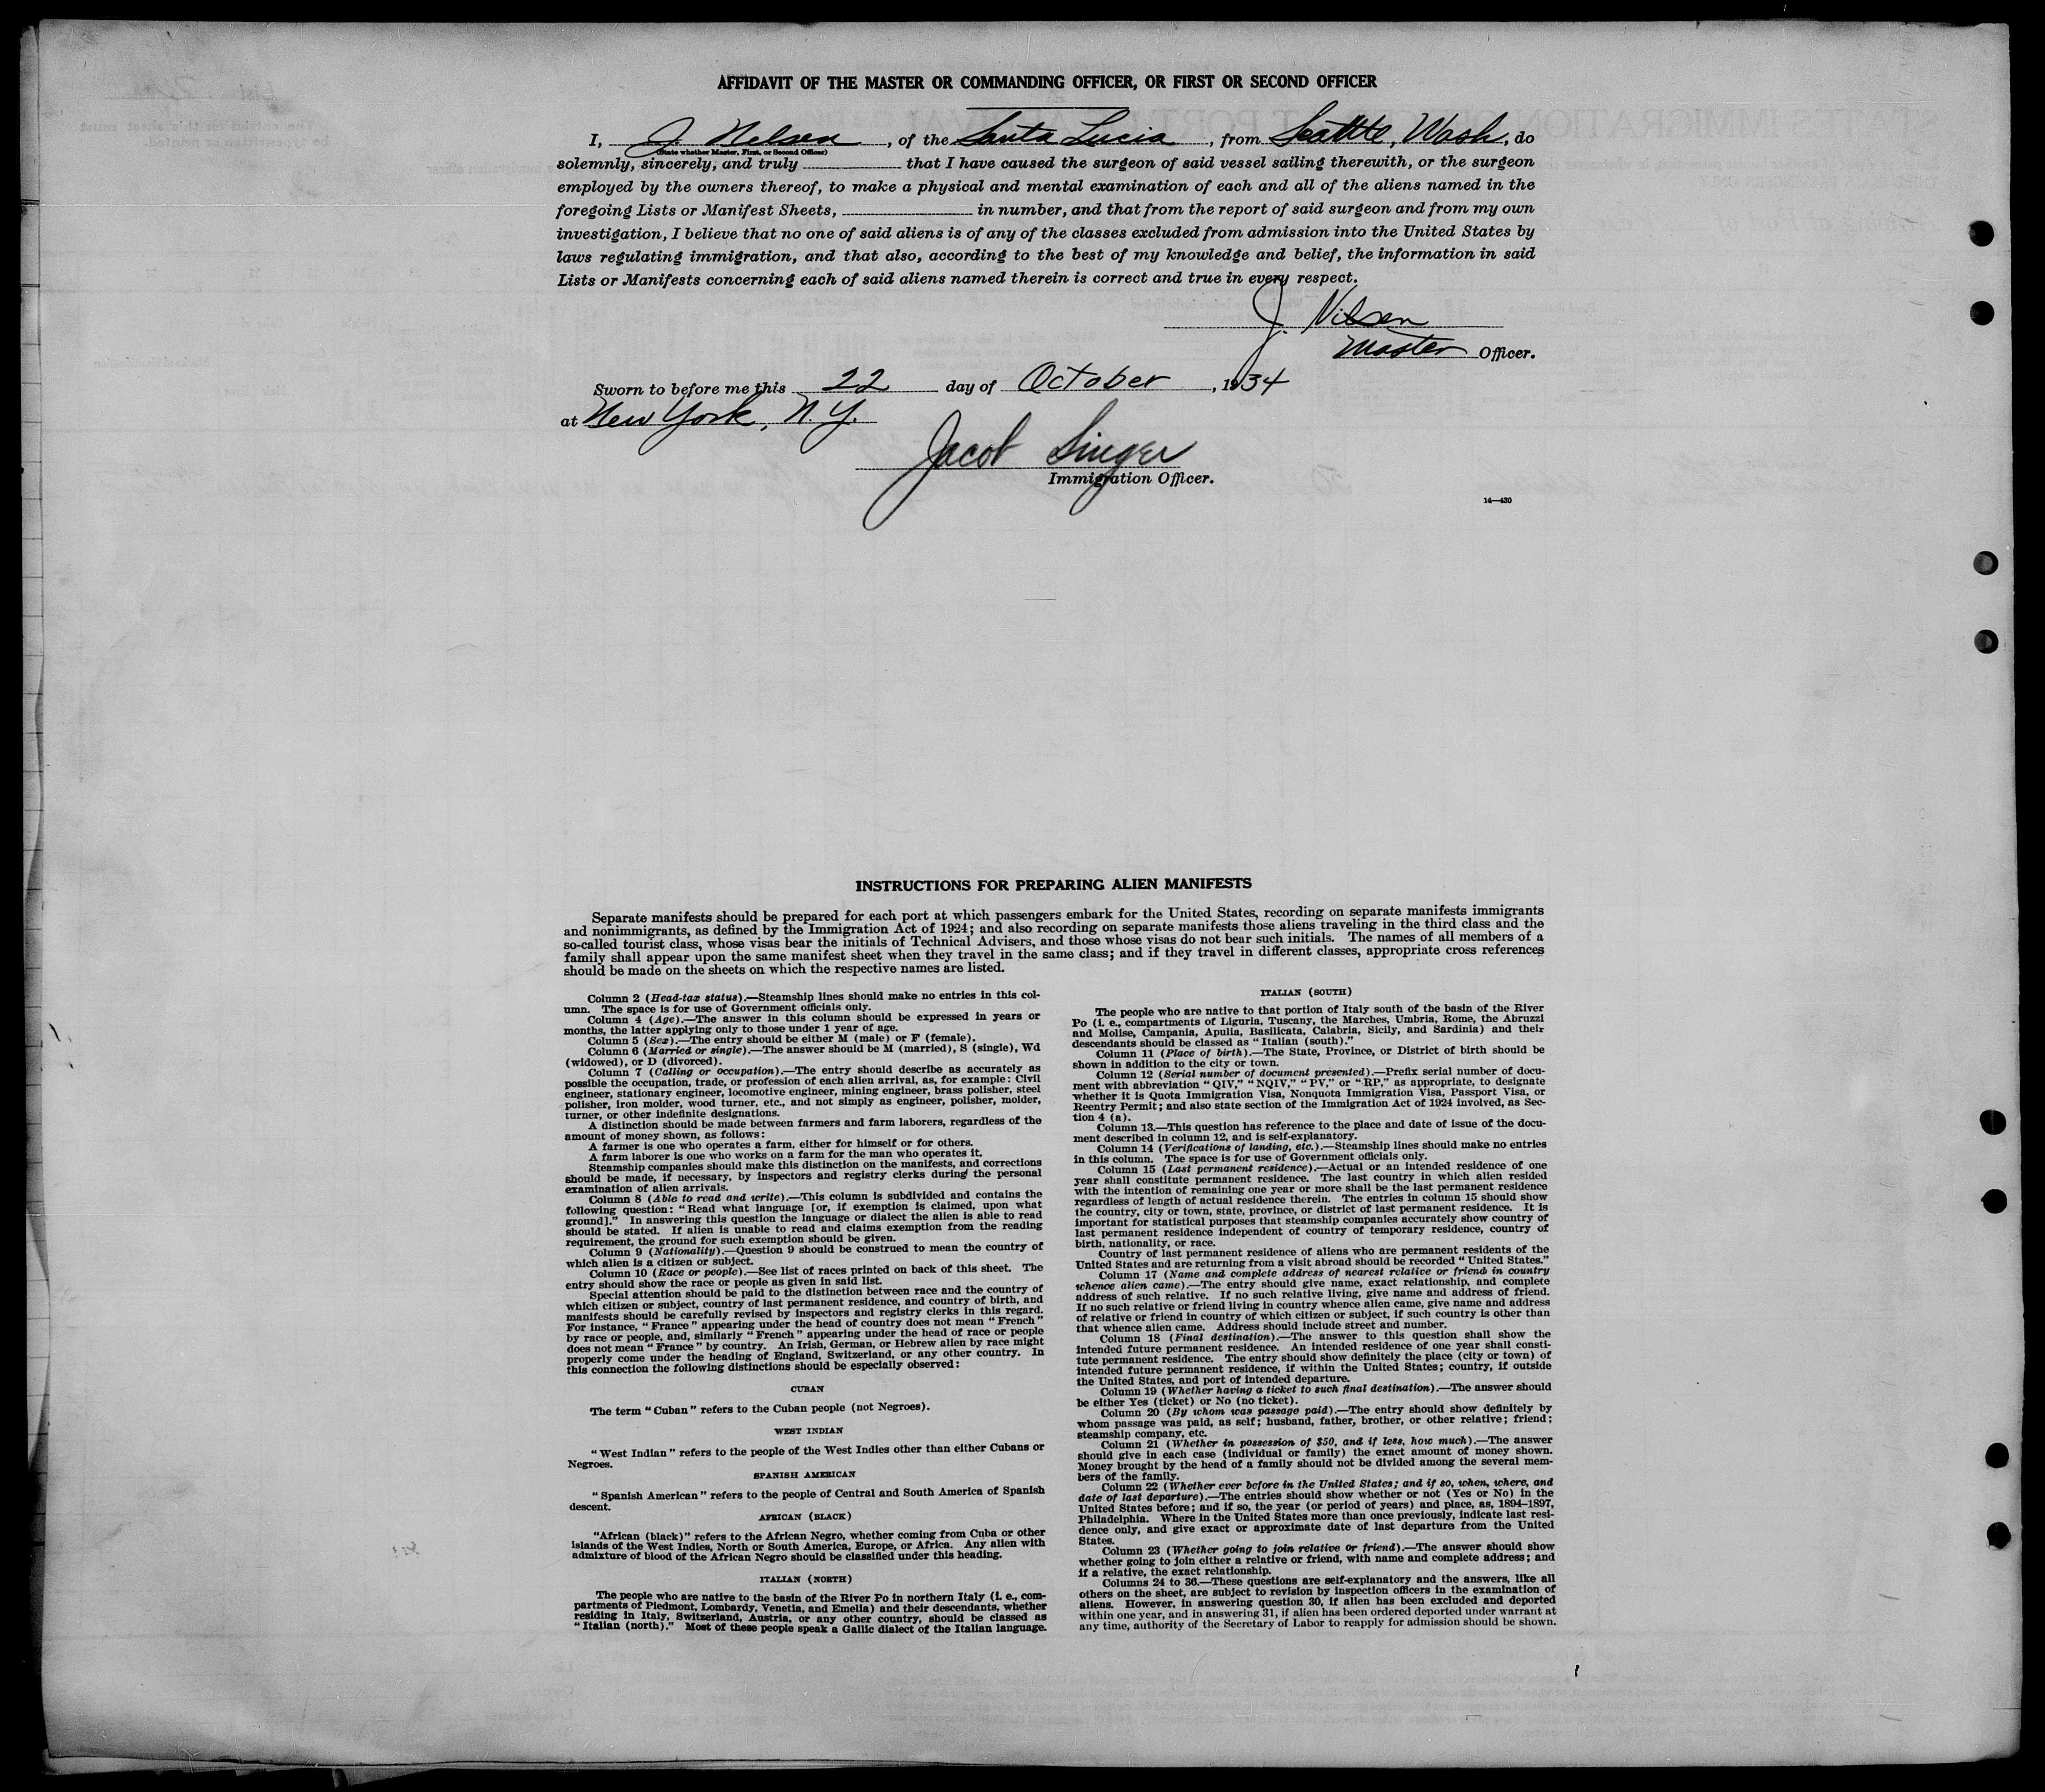 AFFIDAVIT OF THE MASTER OR COMMANDING OFFICER, OR FIRST OR SECOND OFFICER
I, J. Nelsen, of the Santa Lucia, from Seattle, Wash, do
(State whether Master, First, or Second Officer)
solemnly, sincerely, and truly that I have caused the surgeon of said vessel sailing therewith, or the surgeon
employed by the owners thereof, to make a physical and mental examination of each and all of the aliens named in the
foregoing Lists or Manifest Sheets, in number, and that from the report of said surgeon and from my own
investigation, I believe that no one of said aliens is of any of the classes excluded from admission into the United States by
laws regulating immigration, and that also, according to the best of my knowledge and belief, the information in said
Lists or Manifests concerning each of said aliens named therein is correct and true in every respect.
J. Nilsen
Master Officer.
Sworn to before me this 22 day of October, 1934
at New York, N.Y.
Jacob Singer
Immigration Officer.
14—430
INSTRUCTIONS FOR PREPARING ALIEN MANIFESTS
Separate manifests should be prepared for each port at which passengers embark for the United States, recording on separate manifests immigrants
and nonimmigrants, as defined by the Immigration Act of 1924; and also recording on separate manifests those aliens traveling in the third class and the
so-called tourist class, whose visas bear the initials of Technical Advisers, and those whose visas do not bear such initials. The names of all members of a
family shall appear upon the same manifest sheet when they travel in the same class; and if they travel in different classes, appropriate cross references
should be made on the sheets on which the respective names are listed.
Column 2 (Head-tax status).—Steamship lines should make no entries in this col-
umn. The space is for use of Government officials only.
Column 4 (Age).—The answer in this column should be expressed in years or
months, the latter applying only to those under 1 year of age.
Column 5 (Sex).—The entry should be either M (male) or F (female).
Column 6 (Married or single).—The answer should be M (married), S (single), Wd
(widowed), or D (divorced).
Column 7 (Calling or occupation).—The entry should describe as accurately as
possible the occupation, trade, or profession of each alien arrival, as, for example: Civil
engineer, stationary engineer, locomotive engineer, mining engineer, brass polisher, steel
polisher, iron molder, wood turner, etc., and not simply as engineer, polisher, molder,
turner, or other indefinite designations.
A distinction should be made between farmers and farm laborers, regardless of the
amount of money shown, as follows:
A farmer is one who operates a farm, either for himself or for others.
A farm laborer is one who works on a farm for the man who operates it.
Steamship companies should make this distinction on the manifests, and corrections
should be made, if necessary, by inspectors and registry clerks during the personal
examination of alien arrivals.
Column 8 (Able to read and write).—This column is subdivided and contains the
following question: "Read what language [or, if exemption is claimed, upon what
ground]." In answering this question the language or dialect the alien is able to read
should be stated. If alien is unable to read and claims exemption from the reading
requirement, the ground for such exemption should be given.
Column 9 (Nationality).—Question 9 should be construed to mean the country of
which alien is a citizen or subject.
Column 10 (Race or people).—See list of races printed on back of this sheet. The
entry should show the race or people as given in said list.
Special attention should be paid to the distinction between race and the country of
which citizen or subject, country of last permanent residence, and country of birth, and
manifests should be carefully revised by inspectors and registry clerks in this regard.
For instance, "France" appearing under the head of country does not mean "French"
by race or people, and, similarly "French" appearing under the head of race or people
does not mean "France" by country. An Irish, German, or Hebrew alien by race might
properly come under the heading of England, Switzerland, or any other country. In
this connection the following distinctions should be especially observed:
CUBAN
The term "Cuban" refers to the Cuban people (not Negroes).
WEST INDIAN
"West Indian" refers to the people of the West Indies other than either Cubans or
Negroes.
SPANISH AMERICAN
"Spanish American" refers to the people of Central and South America of Spanish
descent.
AFRICAN (BLACK)
"African (black)" refers to the African Negro, whether coming from Cuba or other
islands of the West Indies, North or South America, Europe, or Africa. Any alien with
admixture of blood of the African Negro should be classified under this heading.
ITALIAN (NORTH)
The people who are native to the basin of the River Po in northern Italy (i. e., com-
partments of Piedmont, Lombardy, Venetia, and Emelia) and their descendants, whether
residing in Italy, Switzerland, Austria, or any other country, should be classed as
"Italian (north)." Most of these people speak a Gallic dialect of the Italian language.
ITALIAN (SOUTH)
The people who are native to that portion of Italy south of the basin of the River
Po (i. e., compartments of Liguria, Tuscany, the Marches, Umbria, Rome, the Abruzzi
and Molise, Campania, Apulia, Basilicata, Calabria, Sicily, and Sardinia) and their
descendants should be classed as "Italian (south)."
Column 11 (Place of birth).—The State, Province, or District of birth should be
shown in addition to the city or town.
Column 12 (Serial number of document presented).—Prefix serial number of docu-
ment with abbreviation "QIV," "NQIV," "PV," or "RP," as appropriate, to designate
whether it is Quota Immigration Visa, Nonquota Immigration Visa, Passport Visa, or
Reentry Permit; and also state section of the Immigration Act of 1924 involved, as Sec-
tion 4 (a).
Column 13.—This question has reference to the place and date of issue of the docu-
ment described in column 12, and is self-explanatory.
Column 14 (Verifications of landing, etc.).—Steamship lines should make no entries
in this column. The space is for use of Government officials only.
Column 15 (Last permanent residence).—Actual or an intended residence of one
year shall constitute permanent residence. The last country in which alien resided
with the intention of remaining one year or more shall be the last permanent residence
regardless of length of actual residence therein. The entries in column 15 should show
the country, city or town, state, province, or district of last permanent residence. It is
important for statistical purposes that steamship companies accurately show country of
last permanent residence independent of country of temporary residence, country of
birth, nationality, or race.
Country of last permanent residence of aliens who are permanent residents of the
United States and are returning from a visit abroad should be recorded "United States."
Column 17 (Name and complete address of nearest relative or friend in country
whence alien came).—The entry should give name, exact relationship, and complete
address of such relative. If no such relative living, give name and address of friend.
If no such relative or friend living in country whence alien came, give name and address
of relative or friend in country of which citizen or subject, if such country is other than
that whence alien came. Address should include street and number.
Column 18 (Final destination).—The answer to this question shall show the
intended future permanent residence. An intended residence of one year shall consti-
tute permanent residence. The entry should show definitely the place (city or town) of
intended future permanent residence, if within the United States; country, if outside
the United States, and port of intended departure.
Column 19 (Whether having a ticket to such final destination).—The answer should
be either Yes (ticket) or No (no ticket).
Column 20 (By whom was passage paid).—The entry should show definitely by
whom passage was paid, as self; husband, father, brother, or other relative; friend;
steamship company, etc.
Column 21 (Whether in possession of $50, and if less, how much).—The answer
should give in each case (individual or family) the exact amount of money shown.
Money brought by the head of a family should not be divided among the several mem-
bers of the family.
Column 22 (Whether ever before in the United States; and if so, when, where, and
date of last departure).—The entries should show whether or not (Yes or No) in the
United States before; and if so, the year (or period of years) and place, as, 1894–1897,
Philadelphia. Where in the United States more than once previously, indicate last resi-
dence only, and give exact or approximate date of last departure from the United
States.
Column 23 (Whether going to join relative or friend).—The answer should show
whether going to join either a relative or friend, with name and complete address; and
if a relative, the exact relationship.
Columns 24 to 36.—These questions are self-explanatory and the answers, like all
others on the sheet, are subject to revision by inspection officers in the examination of
aliens. However, in answering question 30, if alien has been excluded and deported
within one year, and in answering 31, if alien has been ordered deported under warrant at
any time, authority of the Secretary of Labor to reapply for admission should be shown.